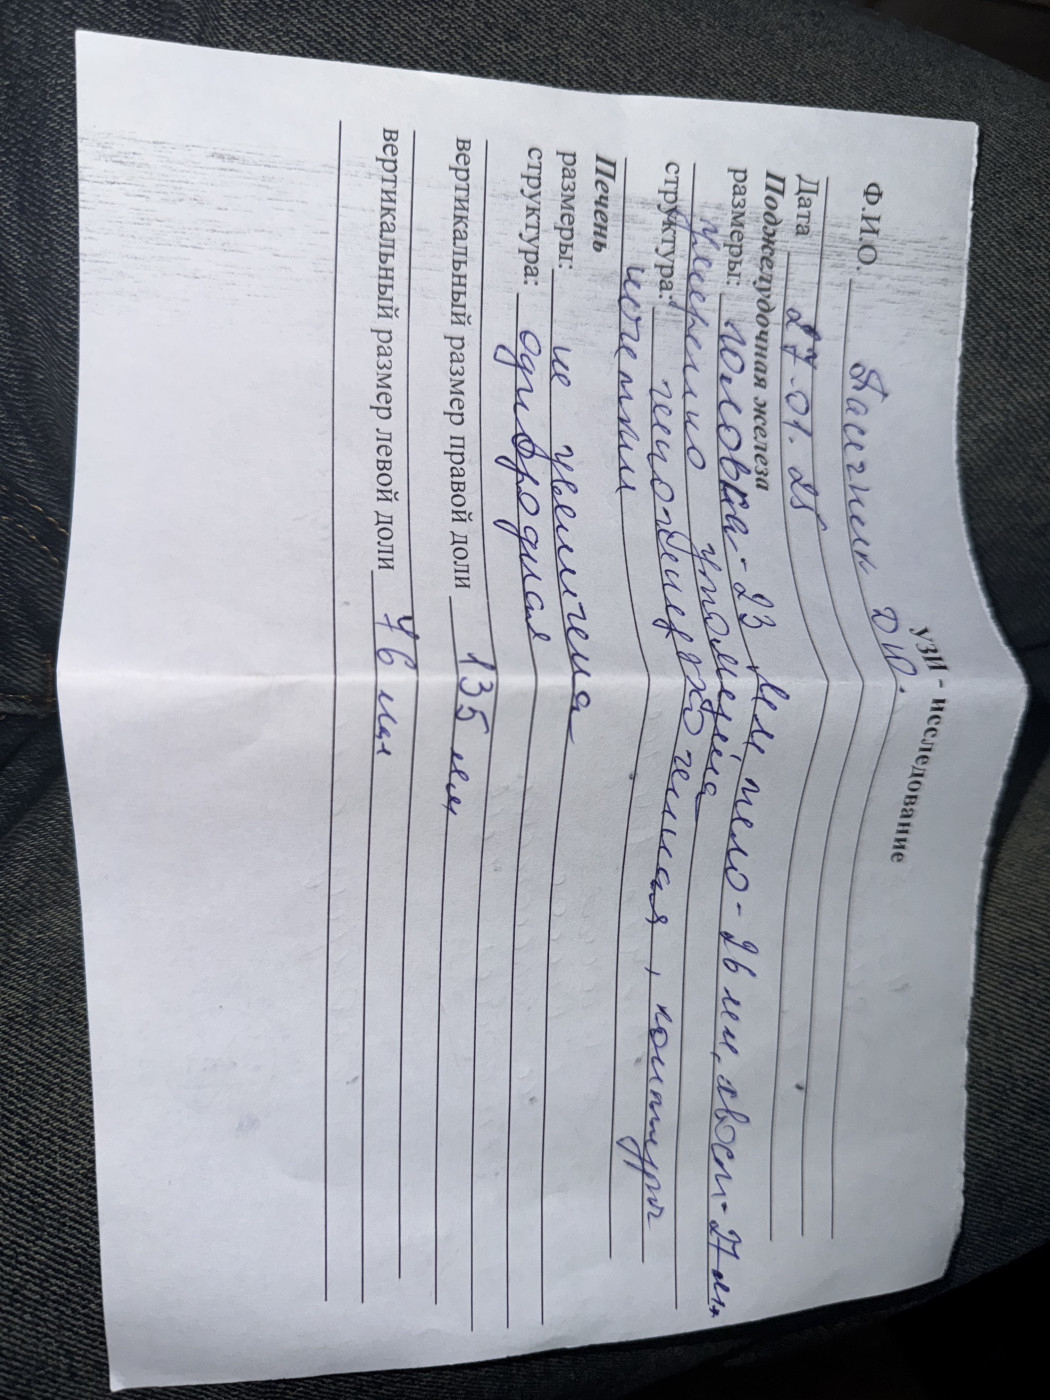 УЗИ - исследование
Ф.И.О. Пасичник Д.Ю.
Дата 27.01.25
Поджелудочная железа
размеры: головка - 23 мм, тело - 26 мм, хвост - 27 мм
умеренно утолщена
структура: неоднородная, контуры
нечеткие
Печень
размеры: не увеличена
структура: однородная
вертикальный размер правой доли 135 мм
вертикальный размер левой доли 76 мм